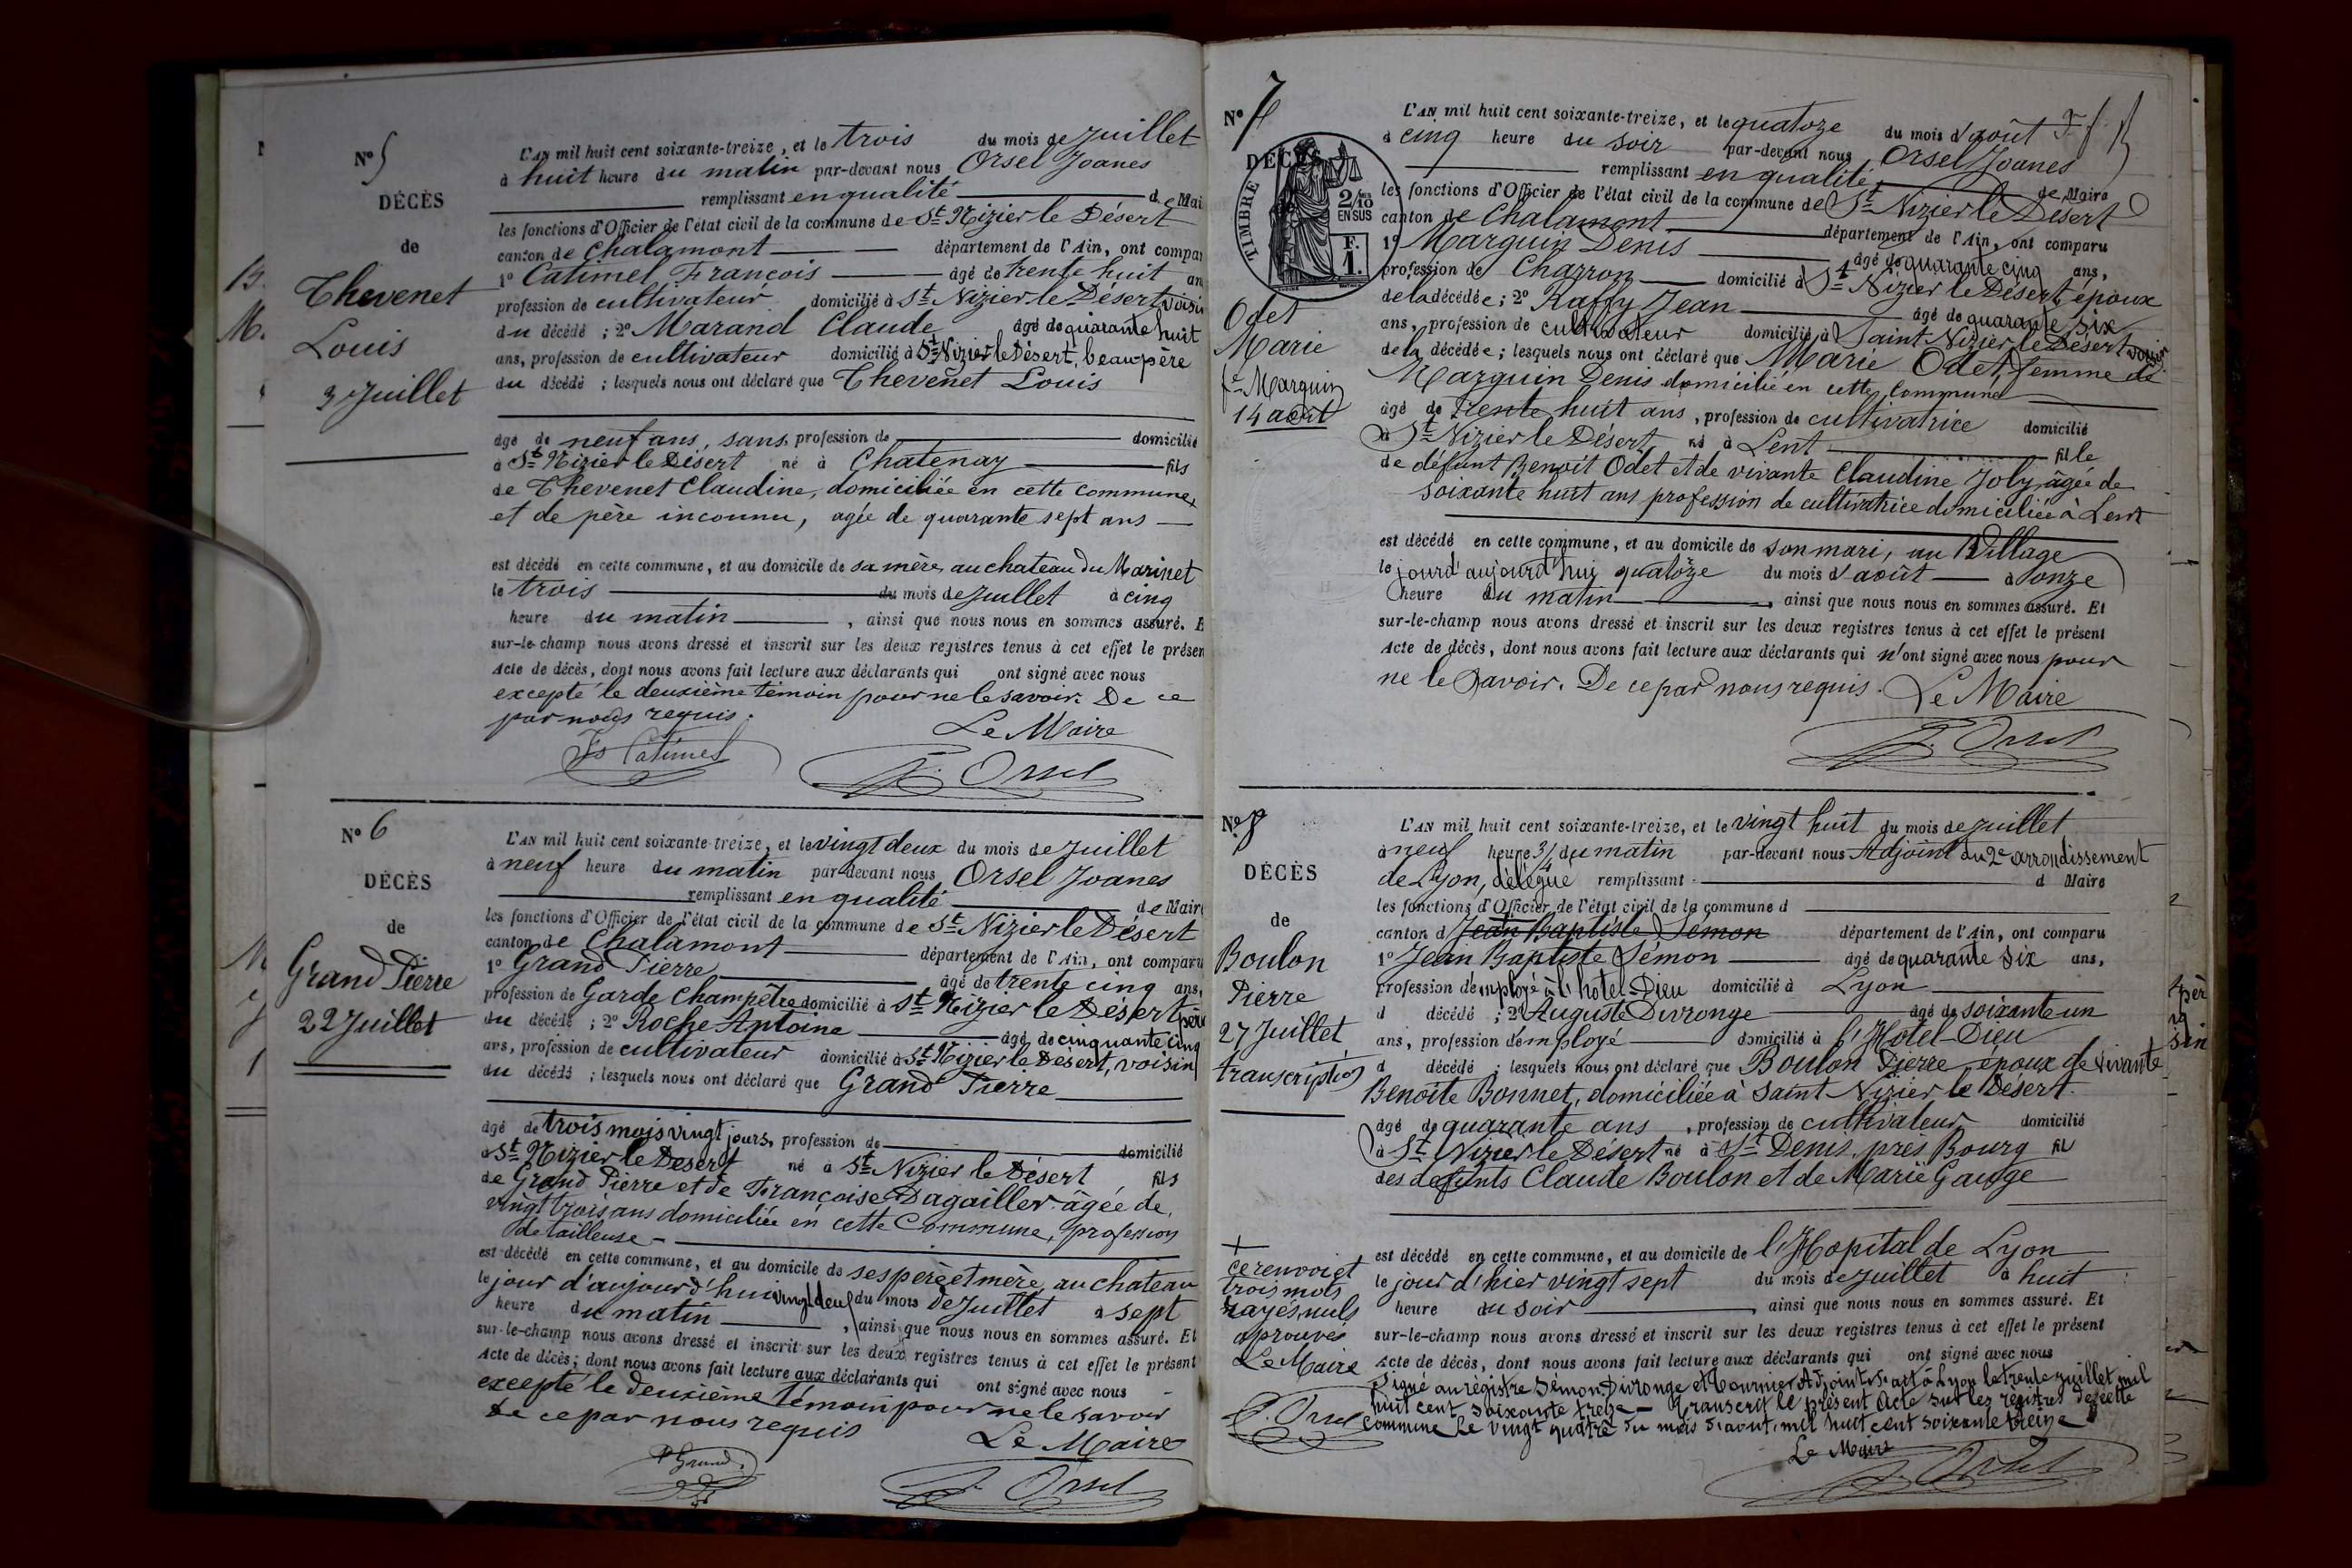 N° 5
DÉCÈS
de
Thevenet
Louis
3 Juillet
L'AN mil huit cent soixante-treize, et le trois du mois de Juillet
à huit heure du matin par-devant nous Orsel Joanes
remplissant en qualité de Mai
les fonctions d'Officier de l'état civil de la commune de St Nizier le Désert
canton de Chalamont département de l'Ain, ont compar
1° Catimel François âgé de trente huit an
profession de cultivateur domicilié à St Nizier le Désert, voisin
du décédé ; 2° Marand Claude âgé de quarante huit
ans, profession de cultivateur domicilié à St Nizier le Désert, beau-père
du décédé ; lesquels nous ont déclaré que Thevenet Louis
âgé de neuf ans, sans, profession de domicilié
à St Nizier le Désert né à Chatenay fils
de Thevenet Claudine, domiciliée en cette commune,
et de père inconnu, agée de quarante sept ans
est décédé en cette commune, et au domicile de sa mère, au chateau du Marinet
le trois du mois de Juillet à cinq
heure du matin , ainsi que nous nous en sommes assuré. E
sur-le-champ nous avons dressé et inscrit sur les deux registres tenus à cet effet le présen
Acte de décès, dont nous avons fait lecture aux déclarants qui ont signé avec nous
excepté le deuxième témoin pour ne le savoir. De ce
par nous requis.
Le Maire
Fs Catimel J. Orsel
N° 6
DÉCÈS
de
Grand Pierre
22 Juillet
L'AN mil huit cent soixante-treize, et le vingt deux du mois de Juillet
à neuf heure du matin par-devant nous Orsel Joanes
remplissant en qualité de Maire
les fonctions d'Officier de l'état civil de la commune de St Nizier le Désert
canton de Chalamont département de l'Ain, ont comparu
1° Grand Pierre âgé de trente cinq ans,
profession de Garde Champêtre domicilié à St Nizier le Désert père
du décédé ; 2° Roche Antoine âgé de cinquante cinq
ans, profession de cultivateur domicilié à St Nizier le Désert, voisin
du décédé ; lesquels nous ont déclaré que Grand Pierre
âgé de trois mois vingt jours, profession de domicilié
à St Nizier le Désert né à St Nizier le Désert fils
de Grand Pierre et de Françoise Dagailler âgée de
vingt trois ans domiciliée en cette Commune, profession
de tailleuse
est décédé en cette commune, et au domicile de ses père et mère, au chateau
le jour d'aujourd'hui vingt deux du mois de Juillet à sept
heure du matin , ainsi que nous nous en sommes assuré. Et
sur-le-champ nous avons dressé et inscrit sur les deux registres tenus à cet effet le présent
Acte de décès; dont nous avons fait lecture aux déclarants qui ont signé avec nous
excepté le deuxième témoin pour ne le savoir
De ce par nous requis
Le Maire
P Grand J. Orsel
N° 7
DÉCÈS
TIMBRE
2/10
EN SUS
F.
1.
Odet
Marie
fe Marguin
14 août
L'AN mil huit cent soixante-treize, et le quatoze du mois d'août
à cinq heure du soir par-devant nous Orsel Joanes
remplissant en qualité de Maire
les fonctions d'Officier de l'état civil de la commune de St Nizier le Désert
canton de Chalamont département de l'Ain, ont comparu
1° Marguin Denis âgé de quarante cinq ans,
profession de Charron domicilié à St Nizier le Désert, époux
de la décédée ; 2° Raffy Jean âgé de quarante six
ans, profession de cultivateur domicilié à Saint Nizier le Désert voisin
de la décédée ; lesquels nous ont déclaré que Marie Odet, femme de
Marguin Denis domicilié en cette Commune
âgé de trente huit ans, profession de cultivatrice domicilié
à St Nizier le Désert, né à Lent fille
de défunt Benoit Odet et de vivante Claudine Joly, âgée de
soixante huit ans profession de cultivatrice domiciliée à Lent
est décédé en cette commune, et au domicile de son mari, au Village
le jourd'aujourd'hui quatoze du mois d'août à onze
heure du matin , ainsi que nous nous en sommes assuré. Et
sur-le-champ nous avons dressé et inscrit sur les deux registres tenus à cet effet le présent
Acte de décès, dont nous avons fait lecture aux déclarants qui n'ont signé avec nous pour
ne le savoir. De ce par nous requis. Le Maire
J. Orsel
N° 8
DÉCÈS
de
Boulon
Pierre
27 Juillet
transcription
L'AN mil huit cent soixante-treize, et le vingt huit du mois de Juillet
à neuf heure 3/4 du matin par-devant nous Adjoint du 2e arrondissement
de Lyon, délégué remplissant d Maire
les fonctions d'Officier de l'état civil de la commune d
canton d Jean Baptiste Sémon département de l'Ain, ont comparu
1° Jean Baptiste Sémon âgé de quarante six ans,
profession d'employé à l'hotel-Dieu domicilié à Lyon
d décédé ; 2° Auguste Divronge âgé de soixante un
ans, profession d'employé domicilié à l'Hotel-Dieu
d décédé ; lesquels nous ont déclaré que Boulon Pierre époux de vivante
Benoîte Bonnet, domiciliée à Saint Nizier le Désert.
âgé de quarante ans, profession de cultivateur domicilié
à St Nizier le Désert né à St Denis, près Bourg fil
des defunts Claude Boulon et de Marie Gauge
est décédé en cette commune, et au domicile de l'Hopital de Lyon
le jour d'hier vingt sept du mois de Juillet à huit
heure du soir , ainsi que nous nous en sommes assuré. Et
sur-le-champ nous avons dressé et inscrit sur les deux registres tenus à cet effet le présent
Acte de décès, dont nous avons fait lecture aux déclarants qui ont signé avec nous
Signé au régistre Sémon, Divronge et Tournier Adjoint. Fait à Lyon le trente juillet mil
huit cent soixante treize – Transcrit le présent Acte sur les régistres de cette
commune le vingt quatre du mois d'aout, mil huit cent soixante treize
Le Maire
J. Orsel
+
ce renvoi et
trois mots
rayés nuls
aprouvés
Le Maire
J. Orsel